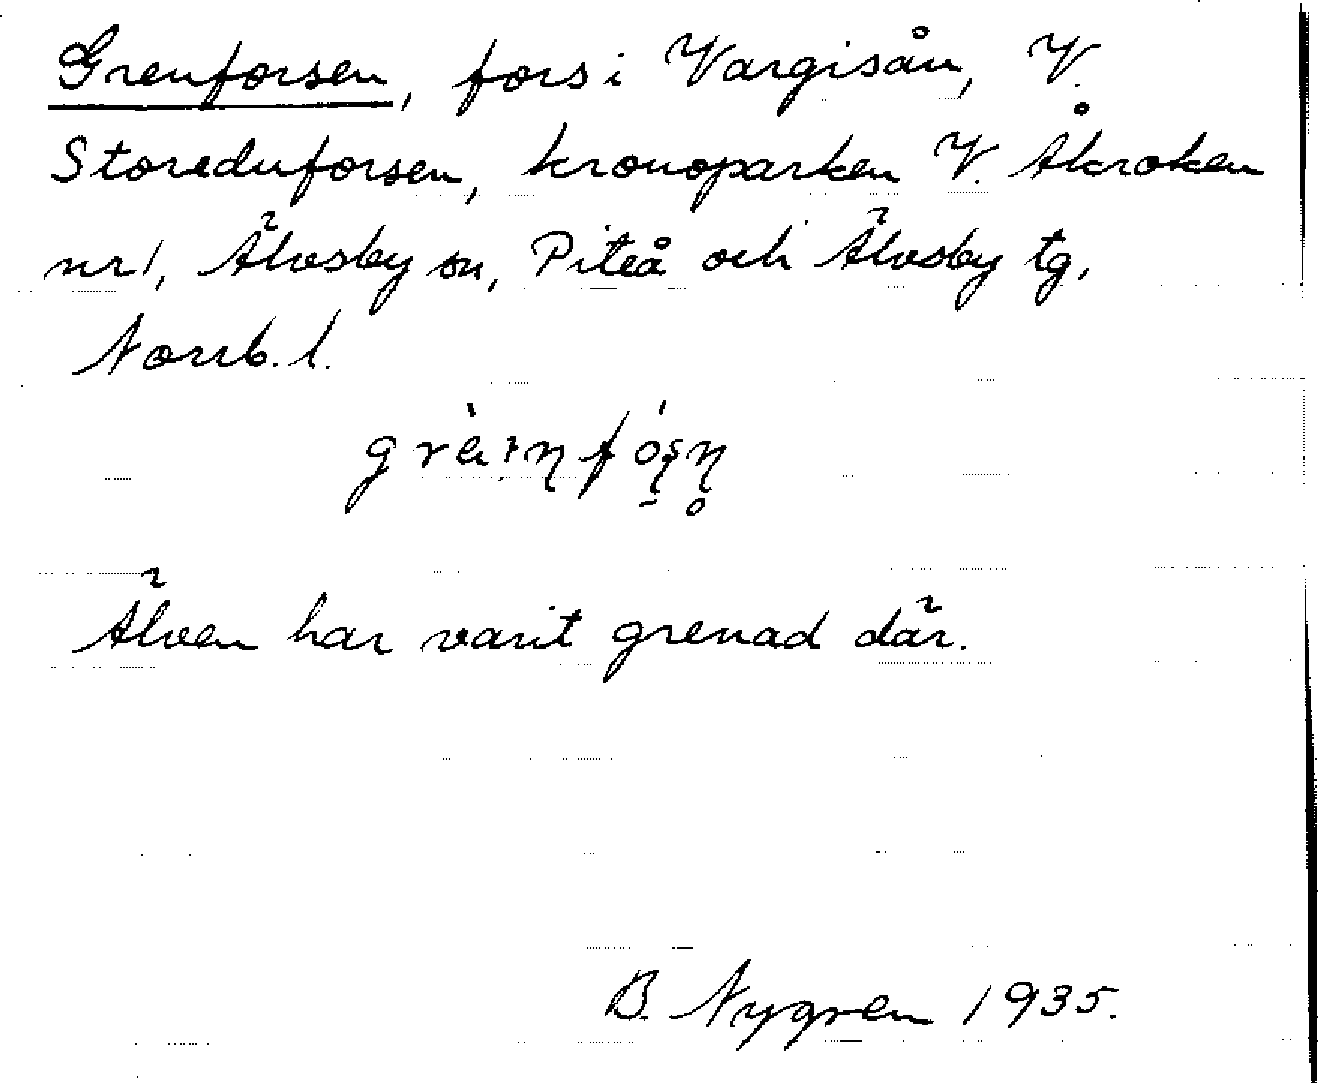 Grenforsen, fors i Vargisån, V.
Storeduforsen, kronoparken V. Åkroken
nr 1, Älvsby sn, Piteå och Älvsby tg,
Norrb. l.
Älven har varit grenad där.
B. Nygren 1935.